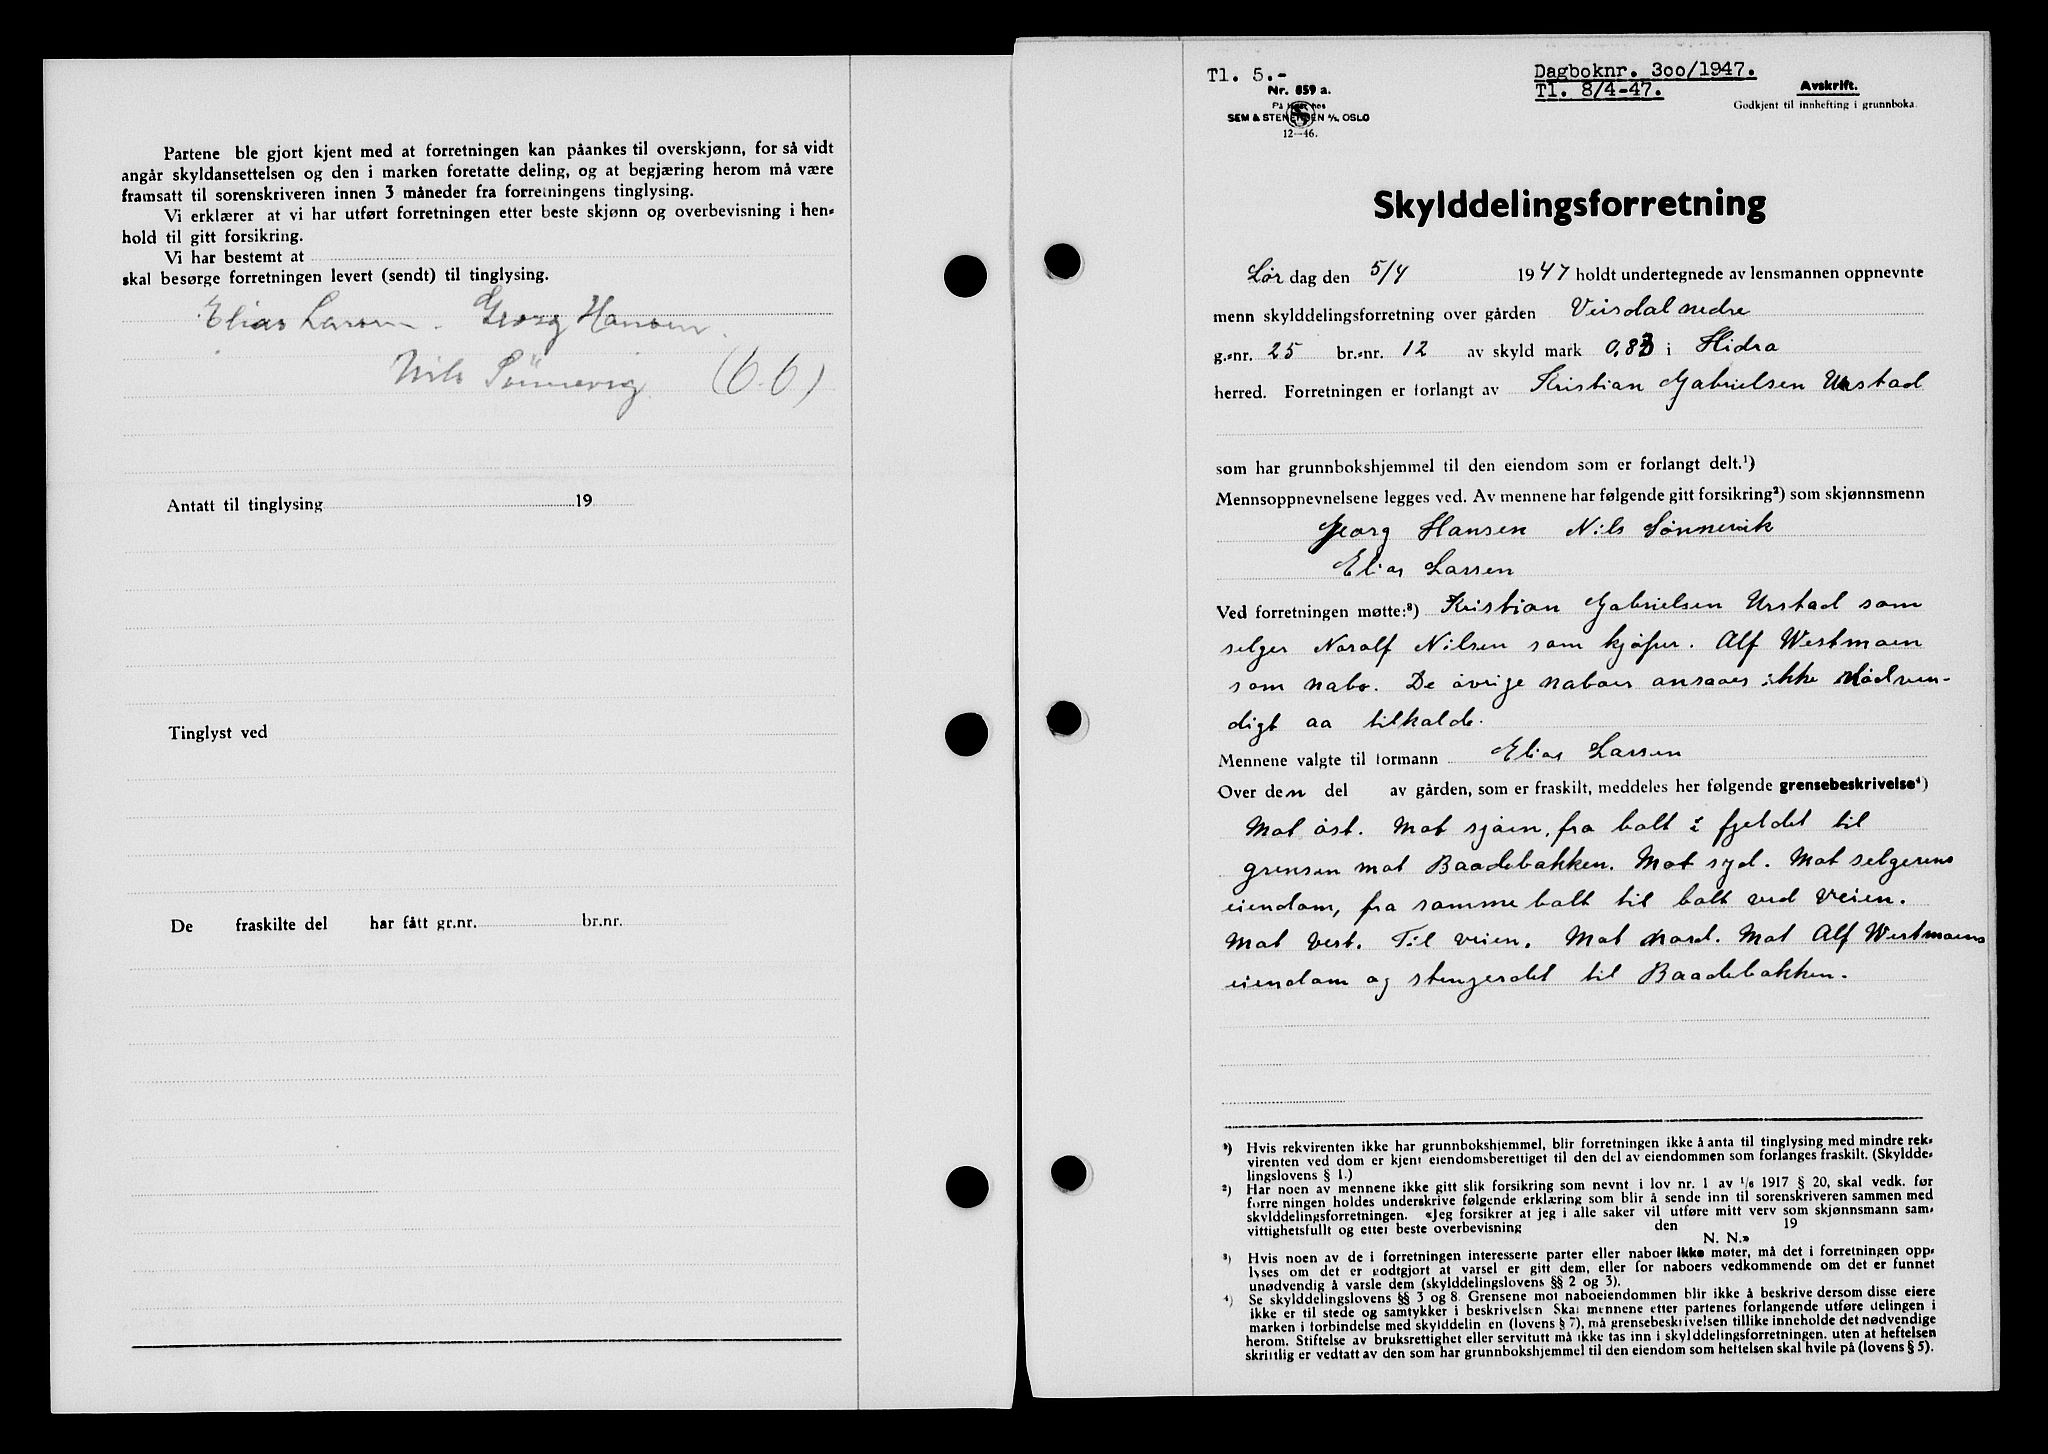 Partene ble gjort kjent med at forretningen kan påankes til overskjønn, for så vidt
angår skyldansettelsen og den i marken foretatte deling, og at begjæring herom må være
framsatt til sorenskriveren innen 3 måneder fra forretningens tinglysing.
Vi erklærer at vi har utført forretningen etter beste skjønn og overbevisning i hen-
hold til gitt forsikring.
Vi har bestemt at
skal besørge forretningen levert (sendt) til tinglysing.
Elias Larsen. Georg Hansen.
Nils Sünnevig. (6.6)
Antatt til tinglysing 19
Tinglyst ved
De fraskilte del har fått gr.nr. br.nr.
Tl. 5.-
Nr. 859 a.
På lager hos
SEM & STENERSEN A/S, OSLO
12—46.
Dagboknr. 3oo/1947.
Tl. 8/4-47.
Avskrift.
Godkjent til innhefting i grunnboka.
Skylddelingsforretning
Lør dag den 5/4 1947 holdt undertegnede av lensmannen oppnevnte
menn skylddelingsforretning over gården Veisdal nedre
g.-nr. 25 br.-nr. 12 av skyld mark 0,83 i Hidra
herred. Forretningen er forlangt av Kristian Gabrielsen Urstad
som har grunnbokshjemmel til den eiendom som er forlangt delt.¹)
Mennsoppnevnelsene legges ved. Av mennene har følgende gitt forsikring²) som skjønnsmenn
Georg Hansen Nils Sønnevik
Elias Larsen
Ved forretningen møtte:³) Kristian Gabrielsen Urstad som
selger Noralf Nilsen som kjøper. Alf Westmoen
som nabo. De øvrige naboer ansaaes ikke nødven-
digt aa tilkalde.
Mennene valgte til formann Elias Larsen
Over den del av gården, som er fraskilt, meddeles her følgende grensebeskrivelse⁴)
Mot øst. Mot sjøen, fra bolt i fjeldet til
grensen mot Baadebakken. Mot syd. Mot selgerens
eiendom, fra samme bolt til bolt ved veien.
Mot vest. Til veien. Mot nord. Mot Alf Westmoens
eiendom og stengjerdet til Baadebakken.
¹) Hvis rekvirenten ikke har grunnbokshjemmel, blir forretningen ikke å anta til tinglysing med mindre rek-
virenten ved dom er kjent eiendomsberettiget til den del av eiendommen som forlanges fraskilt. (Skyldde-
lingslovens § 1.)
²) Har noen av mennene ikke gitt slik forsikring som nevnt i lov nr. 1 av 1/6 1917 § 20, skal vedk. før
forre ningen holdes underskrive følgende erklæring som blir å sende inn til sorenskriveren sammen med
skylddelingsforretningen. «Jeg forsikrer at jeg i alle saker vil utføre mitt verv som skjønnsmann sam-
vittighetsfullt og etter beste overbevisning den 19
N. N.»
³) Hvis noen av de i forretningen interesserte parter eller naboer ikke møter, må det i forretningen opp-
lyses om det er godtgjort at varsel er gitt dem, eller for naboers vedkommende om det er funnet
unødvendig å varsle dem (skylddelingslovens §§ 2 og 3).
⁴) Se skylddelingslovens §§ 3 og 8. Grensene mot naboeiendommen blir ikke å beskrive dersom disse eiere
ikke er til stede og samtykker i beskrivelsen Skal mennene etter partenes forlangende utføre delingen i
marken i forbindelse med skylddelin en (lovens § 7), må grensebeskrivelsen tillike inneholde det nødvendige
herom. Stiftelse av bruksrettighet eller servitutt må ikke tas inn i skylddelingsforretningen. uten at heftelsen
skriftlig er vedtatt av den som har grunnbokshjemmel til den eiendom som heftelsen skal hvile på (lovens § 5).